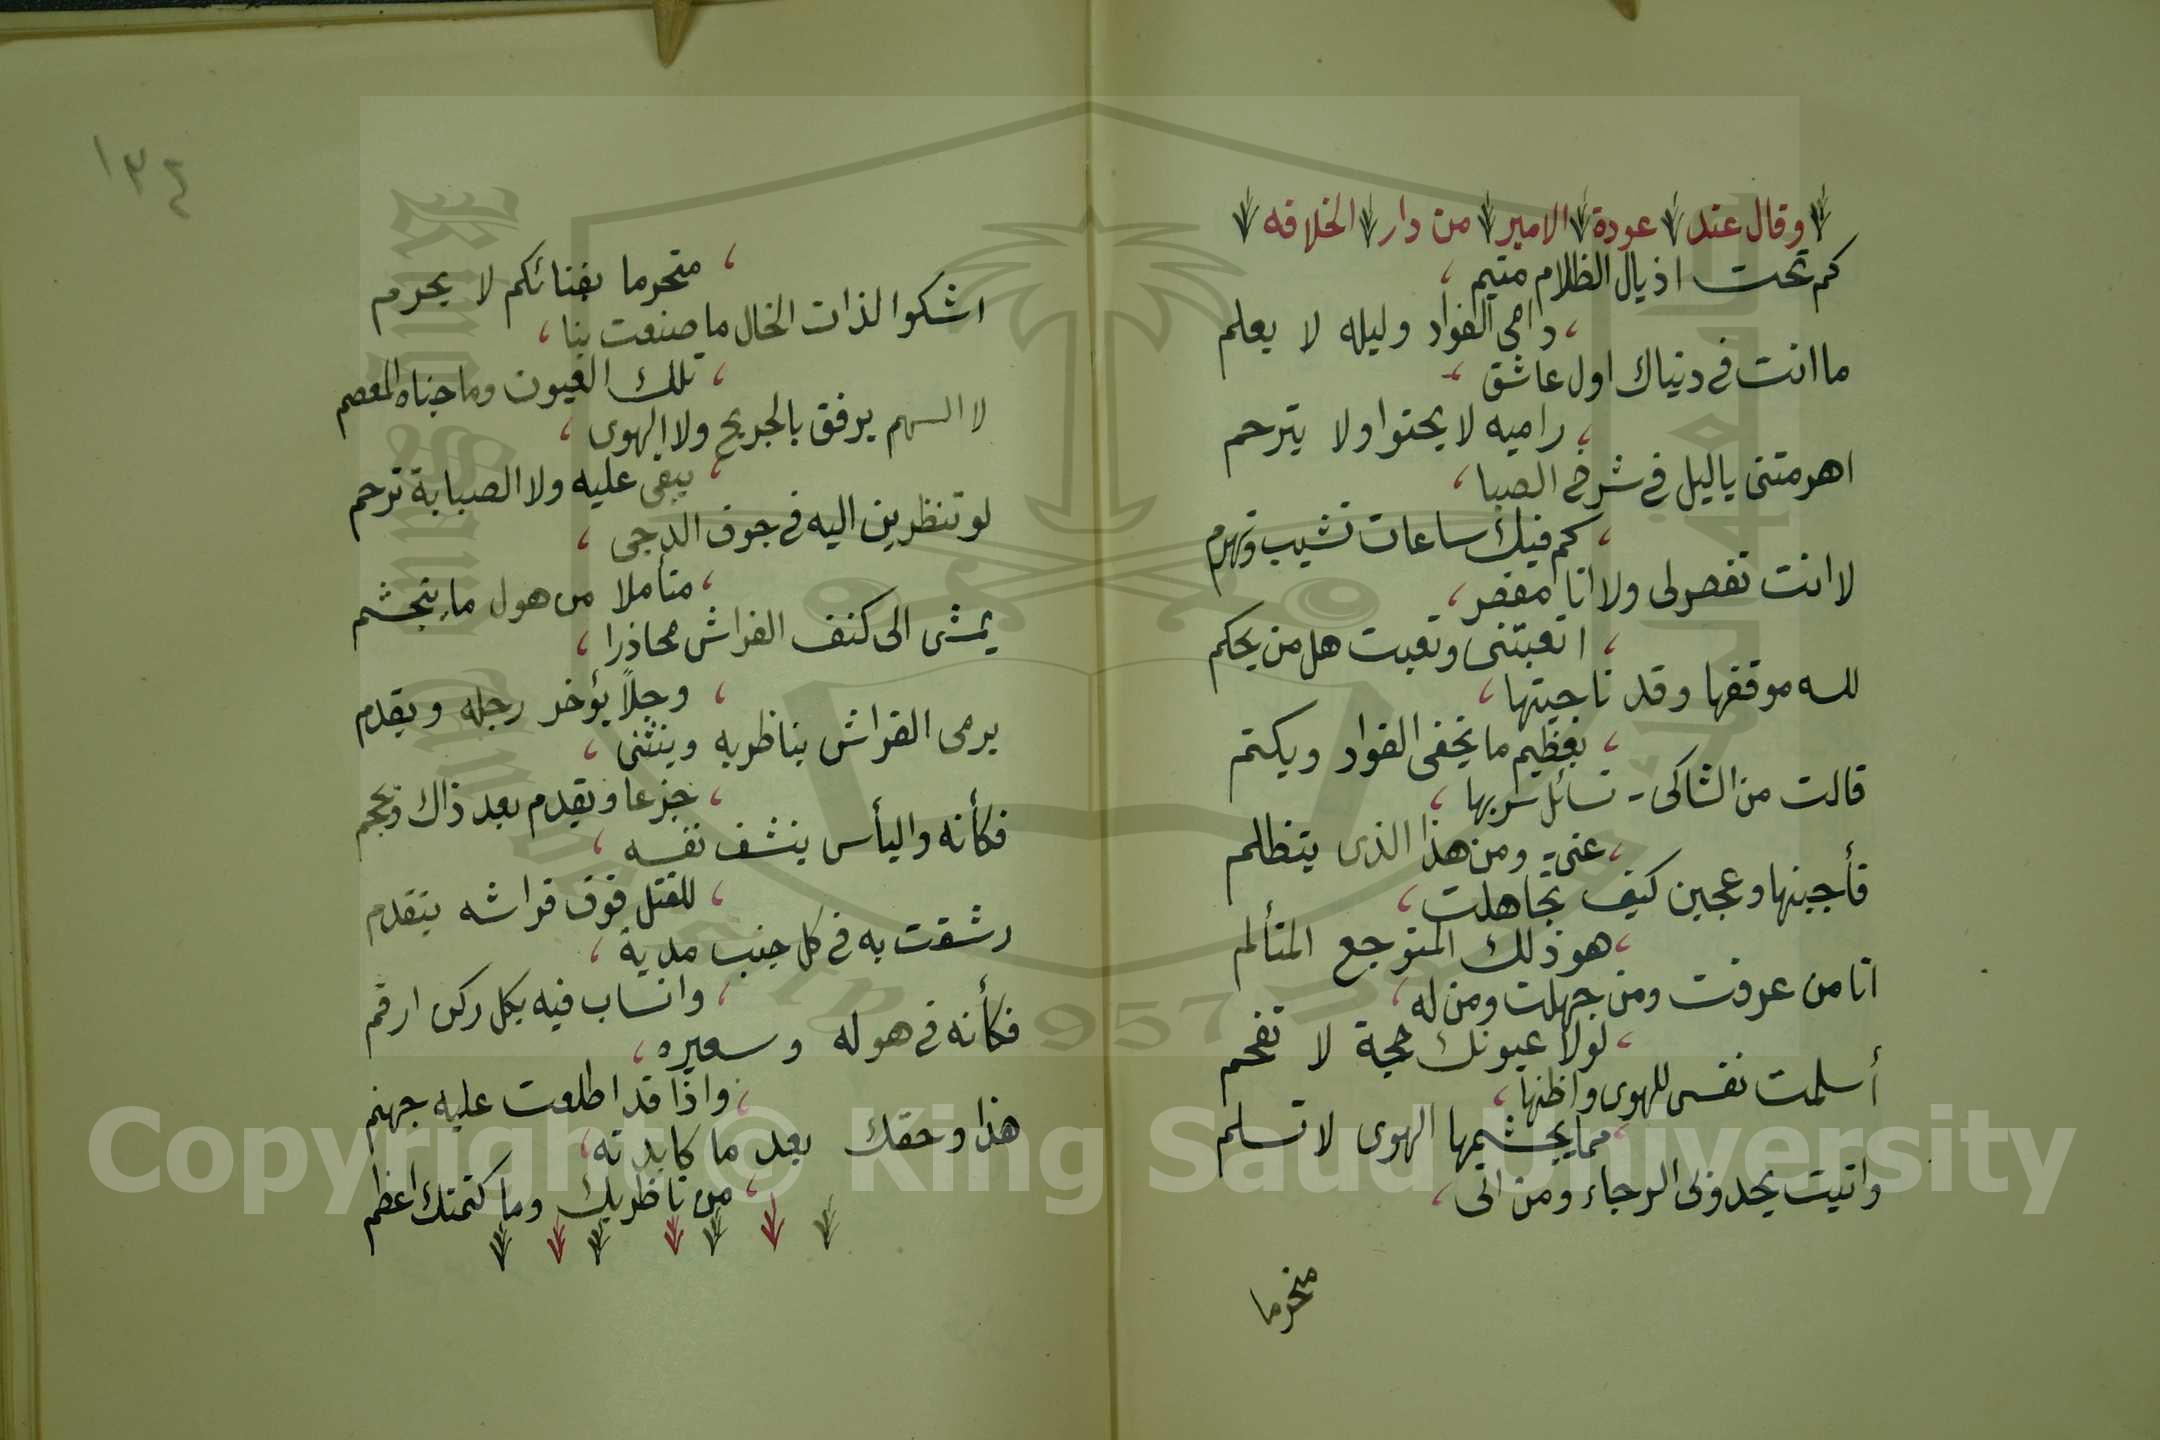 وقال عند عودة الامير من دار الخلافه
كم تحت اذيال الظلام متيم ،
، دامى الفواد وليله لا يعلم
ما انت فى دنياك اول عاشق ،
، راميه لا يحنوا ولا يترحم
اهرمتنى ياليل فى شرخ الصبا ،
، كم فيك ساعات تشيب وتهرم
لا انت تقصر لى ولا انا مقصر ،
، اتعبتنى وتعبت هل من يحكم
لله موقفها وقد ناجيتها ،
، بعظيم ما يخفى الفواد ويكتم
قالت من الشاكى - تسائل سربها ،
، عنى - ومن هذا الذى يتظلم
فأجبنها وعجبن كيف تجاهلت ،
، هو ذلك المتوجع المتألم
انا من عرفت ومن جهلت ومن له ،
، لولا عيونك حجة لا تفحم
أسلمت نفسى للهوى واظنها ،
، مما يجشيمها الهوى لا تسلم
واتيت يحدونى الرجاء ومن اتى ،
متحرما
١٣٤
، متحرما بفنائكم لا يحرم
اشكوا لذات الخال ما صنعت بنا ،
، تلك العيون وما جناه المعصم
لا السهم يرفق بالجريح ولا الهوى ،
، يبقى عليه ولا الصبابة ترحم
لو تنظرين اليه فى جوف الدجى ،
، متأملا من هول ما يتجشم
يمشى الى كنف الفراش محاذرا ،
، وجلاً يؤخر رجله ويقدم
يرمى الفراش بناظريه وينثنى ،
، جزعا ويقدم بعد ذاك ويحجم
فكأنه واليأس ينشف نفسه ،
، للقتل فوق فراشه يتقدم
رشقت به فى كل جنب مدية ،
، وانساب فيه بكل ركن ارقم
فكأنه فى هوله وسعيره ،
، واذا قد اطلعت عليه جهنم
هذا وحقك بعد ما كابدته ،
، من ناظريك وما كتمتك اعظم
King Saud University
1957
Copyright © King Saud University